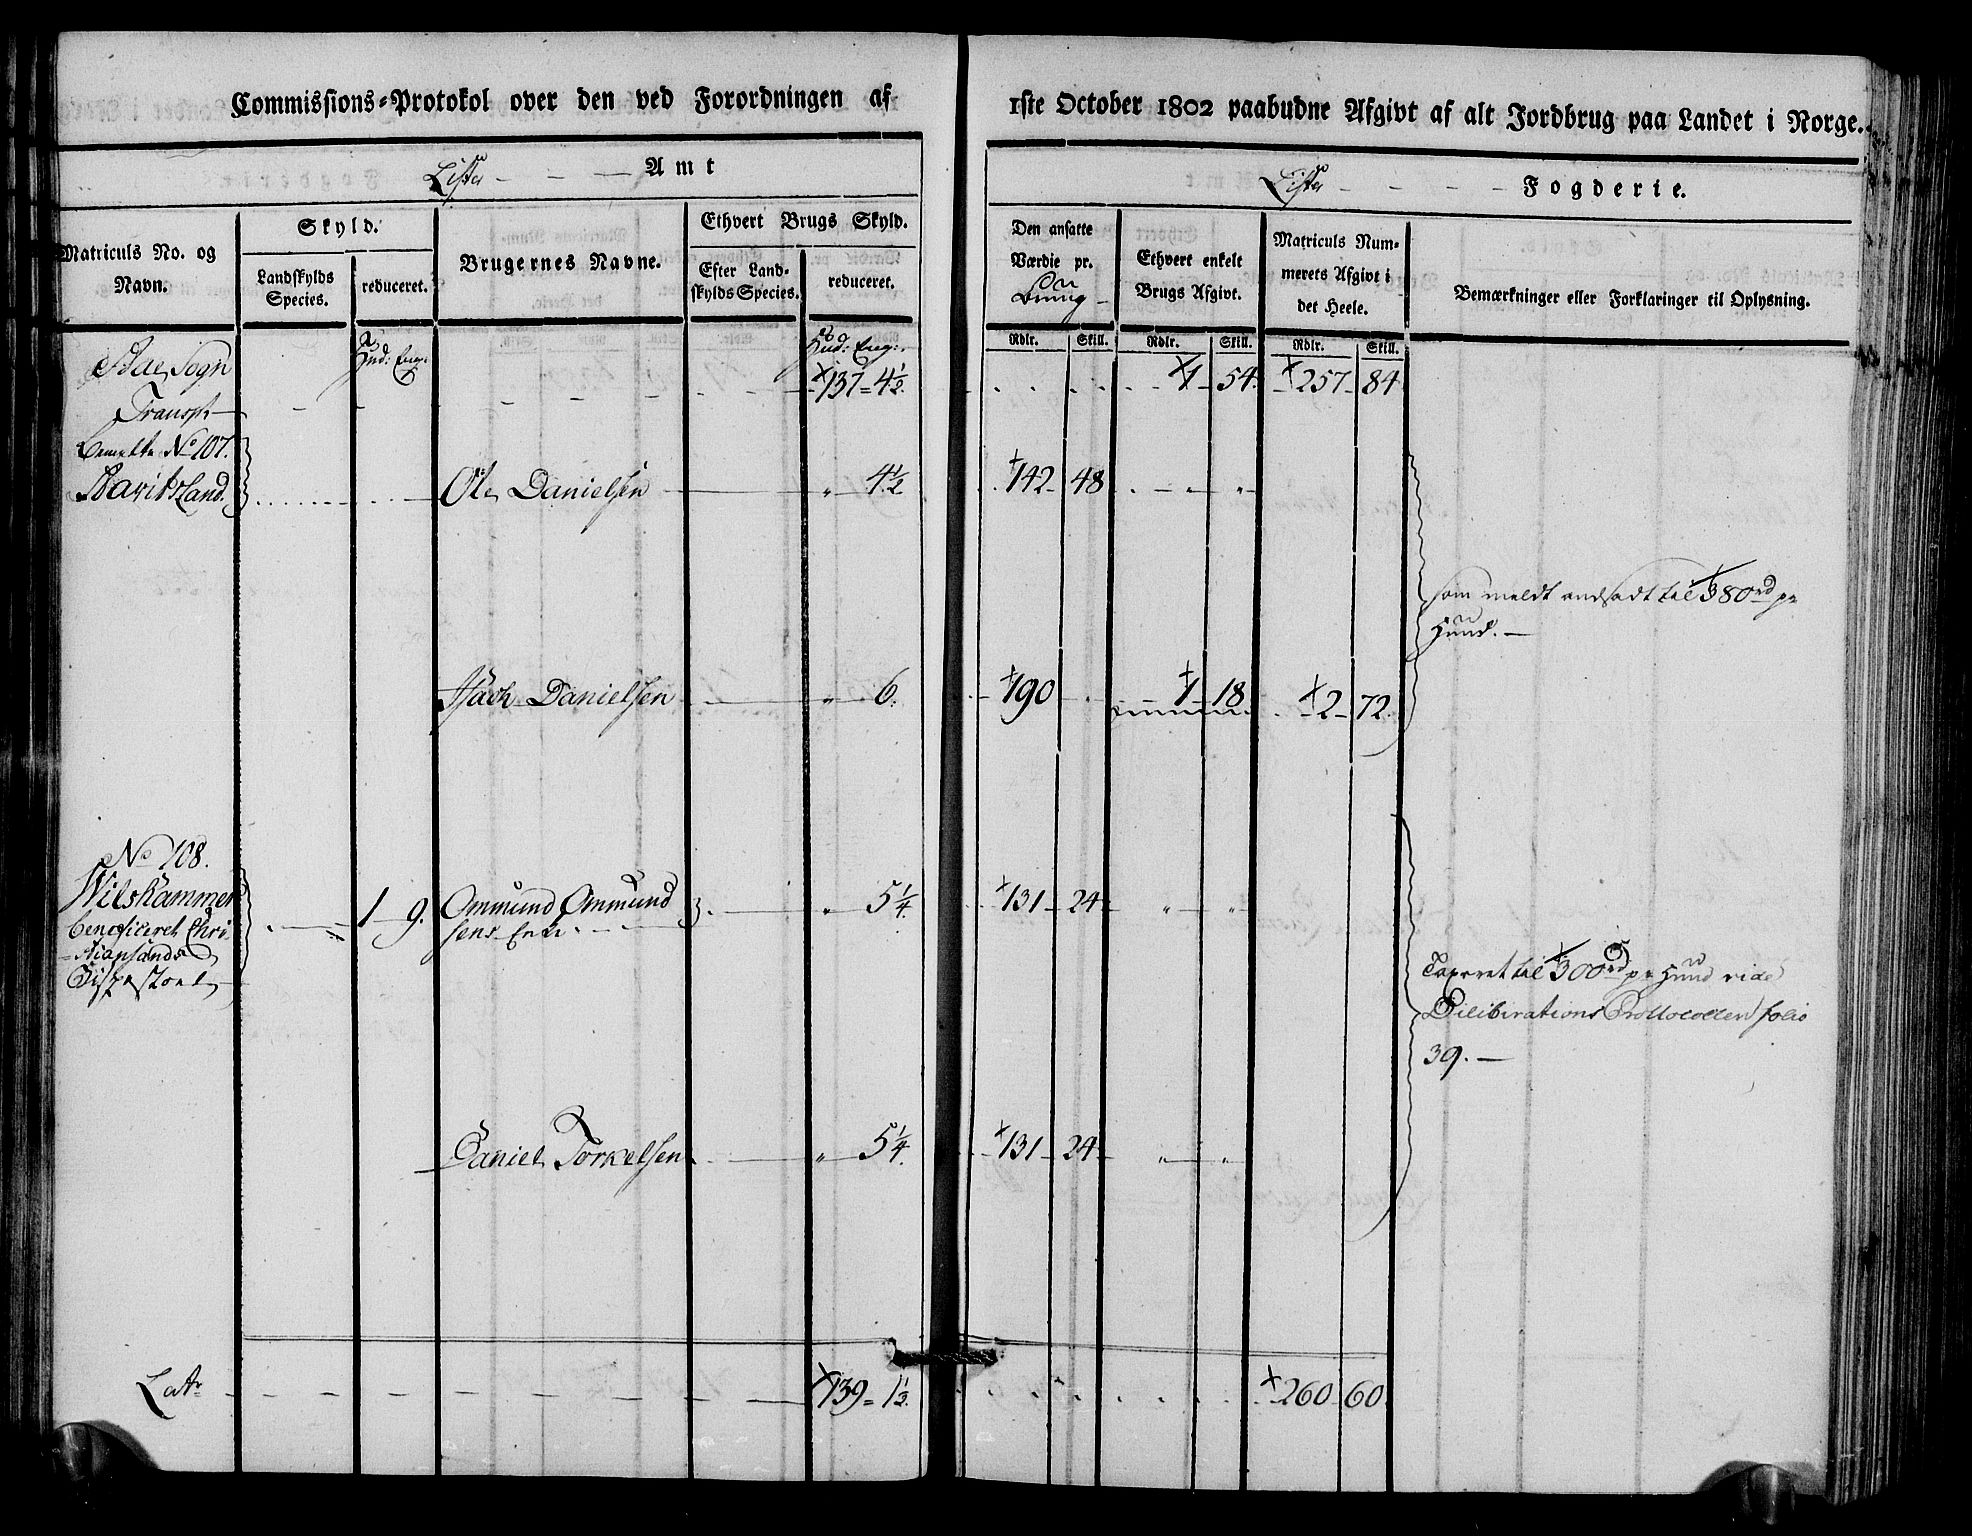 Commissions-Protokol over den ved Forordningen af
1ste October 1802 paabudne Afgivt af alt Jordbrug paa Landet i Norge.
Lister — — — Amt
Lister — — — Fogderie.
Matriculs No. og Navn.
Skyld.
Landskylds Species.
reduceret.
Brugernes Navne.
Ethvert Brugs Skyld.
Efter Landskylds Species.
reduceret.
Den ansatte Værdie pr.
Ethvert enkelt Brugs Afgivt.
Matriculs Nummerets Afgivt i det Heele.
Bemærkninger eller Forklaringer til Oplysning.
Hud: Eng:
Hud: Eng:
Rdlr. Skill. Rdlr. Skill. Rdlr. Skill.
Sogn
Transpt — 137 = 4½. 1 - 54 257 - 84
Bemelte No 107.
Ole Danielsen — " 4½ 142 - 48 " "
som meldt ansadt til 380 rd pr
Hud. —
Isach Danielsen — " 6. 190 1 - 18 2 - 72
No 108.
Wilskammer 1 9. Ommund Ommund " 5¼. 131 - 24 " "
beneficeret Chri- sens Enke
stiansands
Bispestoel
Taxeret til 300 rd pr Hud vide
Deliberations Protocollen folio
39. —
Daniel Torkelsen " 5¼. 131 - 24 " "
Latr — 139 = 1½. 260 60